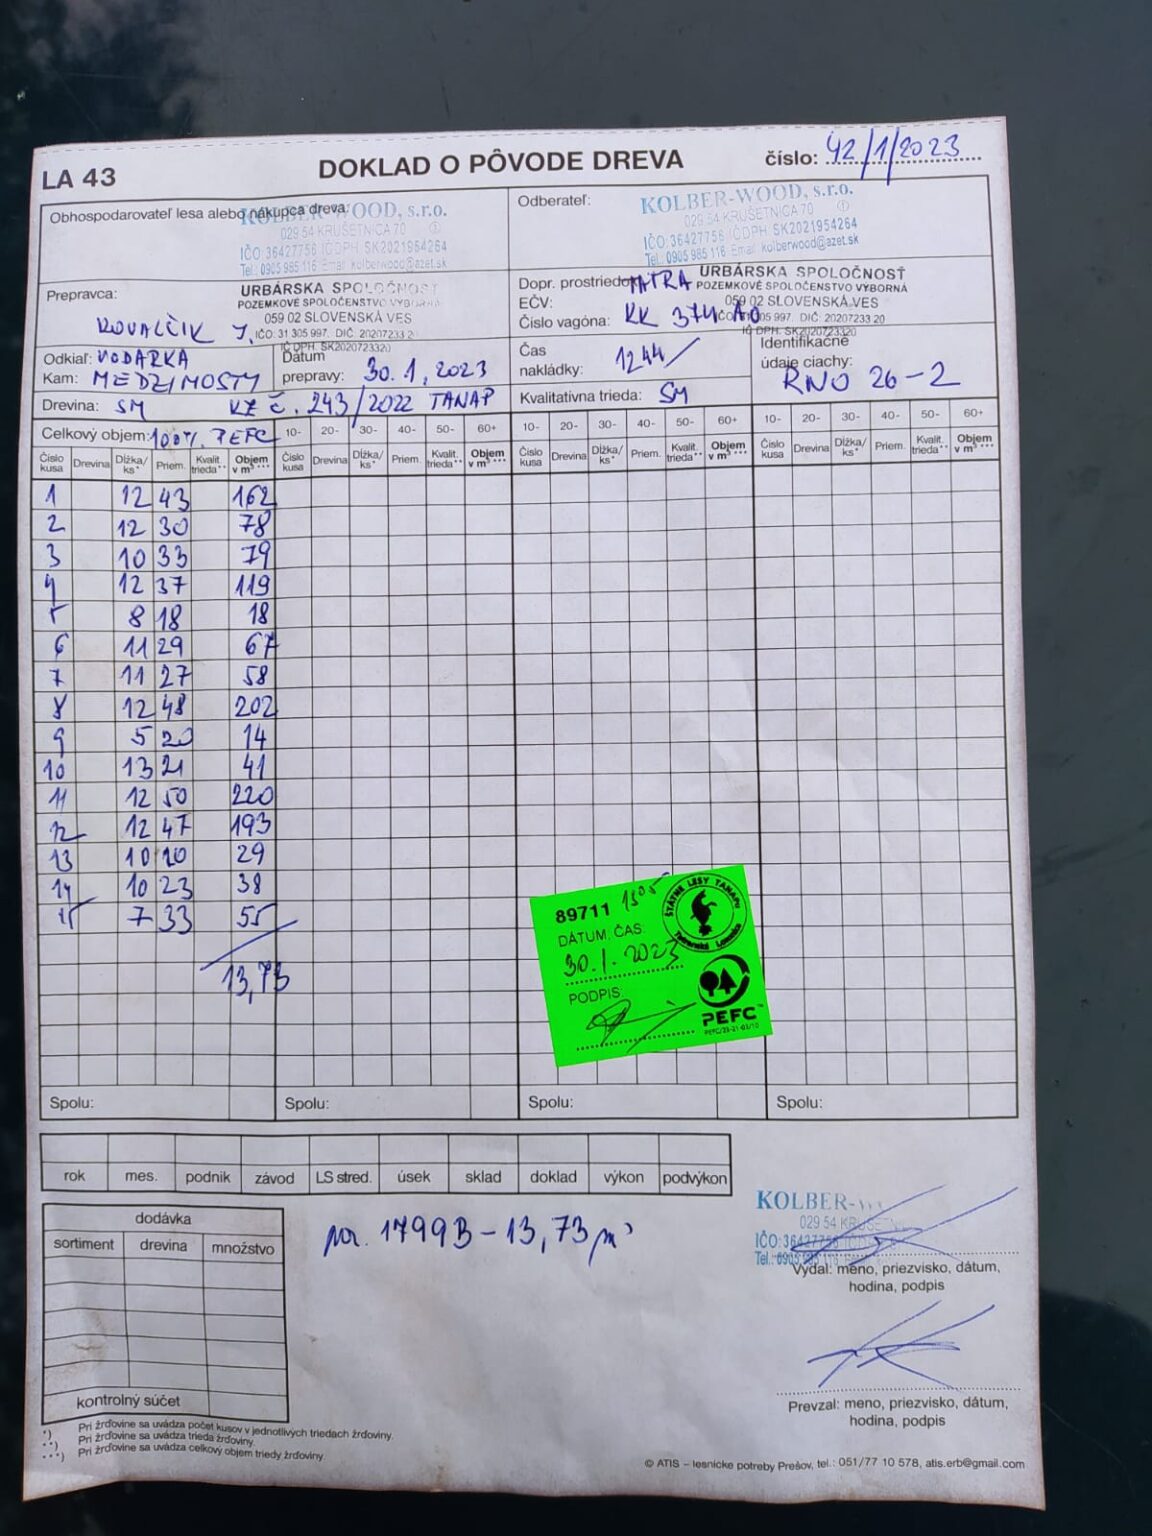 LA 43
DOKLAD O PÔVODE DREVA
číslo: 42/1/2023
Obhospodarovateľ lesa alebo nákupca dreva:
KOLBER-WOOD, s.r.o.
029 54 KRUŠETNICA 70
IČO: 36427756 IČDPH SK2021954264
Tel.: 0905 985 116 Email: kolberwood@azet.sk
Odberateľ:
KOLBER-WOOD, s.r.o.
029 54 KRUŠETNICA 70 ①
IČO: 36427756 IČDPH SK2021954264
Tel.: 0905 985 116 Email: kolberwood@azet.sk
Prepravca:
KOVALČIK J.
URBÁRSKA SPOLOČNOSŤ
POZEMKOVÉ SPOLOČENSTVO VÝBORNÁ
059 02 SLOVENSKÁ VES
IČO: 31 305 997, DIČ: 20207233 20
IČ DPH: SK2020723320
Dopr. prostriedok: TATRA
EČV:
Číslo vagóna: KK 374 AO
URBÁRSKA SPOLOČNOSŤ
POZEMKOVÉ SPOLOČENSTVO VÝBORNÁ
059 02 SLOVENSKÁ VES
IČO: 31 305 997, DIČ: 20207233 20
IČ DPH: SK2020723320
Odkiaľ: VODÁRKA
Kam: MEDZIMOSTY
Dátum
prepravy: 30.1.2023
Čas
nakládky: 1244
Identifikačné
údaje ciachy:
RNO 26-2
Drevina: SM KZ č. 243/2022 TANAP
Kvalitatívna trieda: SM
Celkový objem: 100% PEFC
10- 20- 30- 40- 50- 60+ 10- 20- 30- 40- 50- 60+ 10- 20- 30- 40- 50- 60+
Číslo kusa Drevina Dĺžka/ ks* Priem. Kvalit. trieda** Objem v m³*** Číslo kusa Drevina Dĺžka/ ks* Priem. Kvalit. trieda** Objem v m³*** Číslo kusa Drevina Dĺžka/ ks* Priem. Kvalit. trieda** Objem v m³*** Číslo kusa Drevina Dĺžka/ ks* Priem. Kvalit. trieda** Objem v m³***
1 12 43 162
2 12 30 78
3 10 33 79
4 12 37 119
5 8 18 18
6 11 29 67
7 11 27 58
8 12 48 202
9 5 20 14
10 13 21 41
11 12 50 220
12 12 47 193
13 10 20 29
14 10 23 38
15 7 33 55
13,73
89711 1305
DÁTUM, ČAS:
30.1.2023
PODPIS:
ŠTÁTNE LESY TANAPu
Tatranská Lomnica
PEFC™
Spolu: Spolu: Spolu: Spolu:
rok mes. podnik závod LS stred. úsek sklad doklad výkon podvýkon
dodávka
sortiment drevina množstvo
kontrolný súčet
1799B - 13,73 m³
KOLBER-W
029 54 KRUŠETN
IČO: 36427756
Tel.: 0905 985 116
Vydal: meno, priezvisko, dátum,
hodina, podpis
Prevzal: meno, priezvisko, dátum,
hodina, podpis
*) Pri žrďovine sa uvádza počet kusov v jednotlivých triedach žrďoviny.
**) Pri žrďovine sa uvádza trieda žrďoviny.
***) Pri žrďovine sa uvádza celkový objem triedy žrďoviny
© ATIS – lesnícke potreby Prešov, tel.: 051/77 10 578, atis.erb@gmail.com